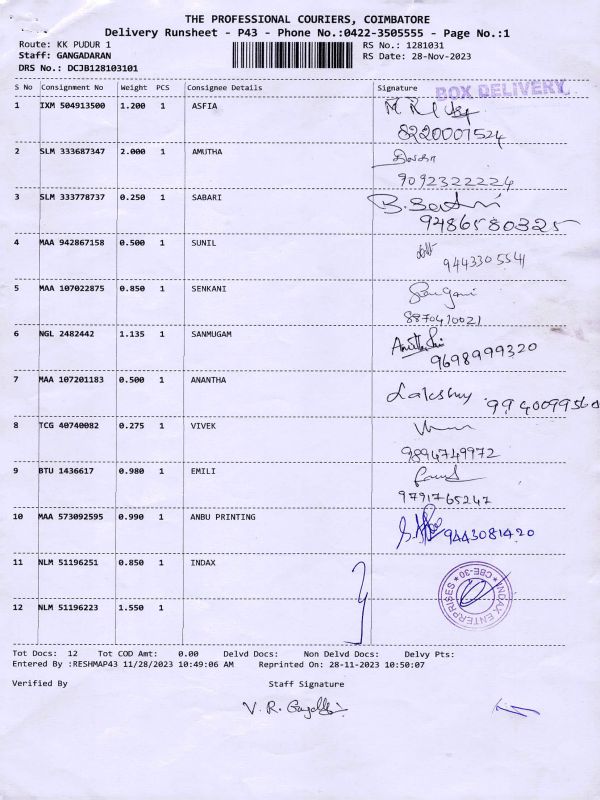 THE PROFESSIONAL COURIERS, COIMBATORE
Delivery Runsheet - P43 - Phone No.:0422-3505555 - Page No.:1
Route: KK PUDUR 1 RS No.: 1281031
Staff: GANGADARAN RS Date: 28-Nov-2023
DRS No.: DCJB128103101
S No Consignment No Weight PCS Consignee Details Signature BOX DELIVERY
1 IXM 504913500 1.200 1 ASFIA
8220007524
2 SLM 333687347 2.000 1 AMUTHA
9092322224
3 SLM 333778737 0.250 1 SABARI
9486580325
4 MAA 942867158 0.500 1 SUNIL
9443305541
5 MAA 107022875 0.850 1 SENKANI
8870410021
6 NGL 2482442 1.135 1 SANMUGAM
9698999320
7 MAA 107201183 0.500 1 ANANTHA
Lakshmy 9940099560
8 TCG 40740082 0.275 1 VIVEK
9894749972
9 BTU 1436617 0.980 1 EMILI
9791765247
10 MAA 573092595 0.990 1 ANBU PRINTING
9443081420
11 NLM 51196251 0.850 1 INDAX
INDAX ENTERPRISES * CBE-30 *
12 NLM 51196223 1.550 1
Tot Docs: 12 Tot COD Amt: 0.00 Delvd Docs: Non Delvd Docs: Delvy Pts:
Entered By :RESHMAP43 11/28/2023 10:49:06 AM Reprinted On: 28-11-2023 10:50:07
Verified By Staff Signature
V. R.